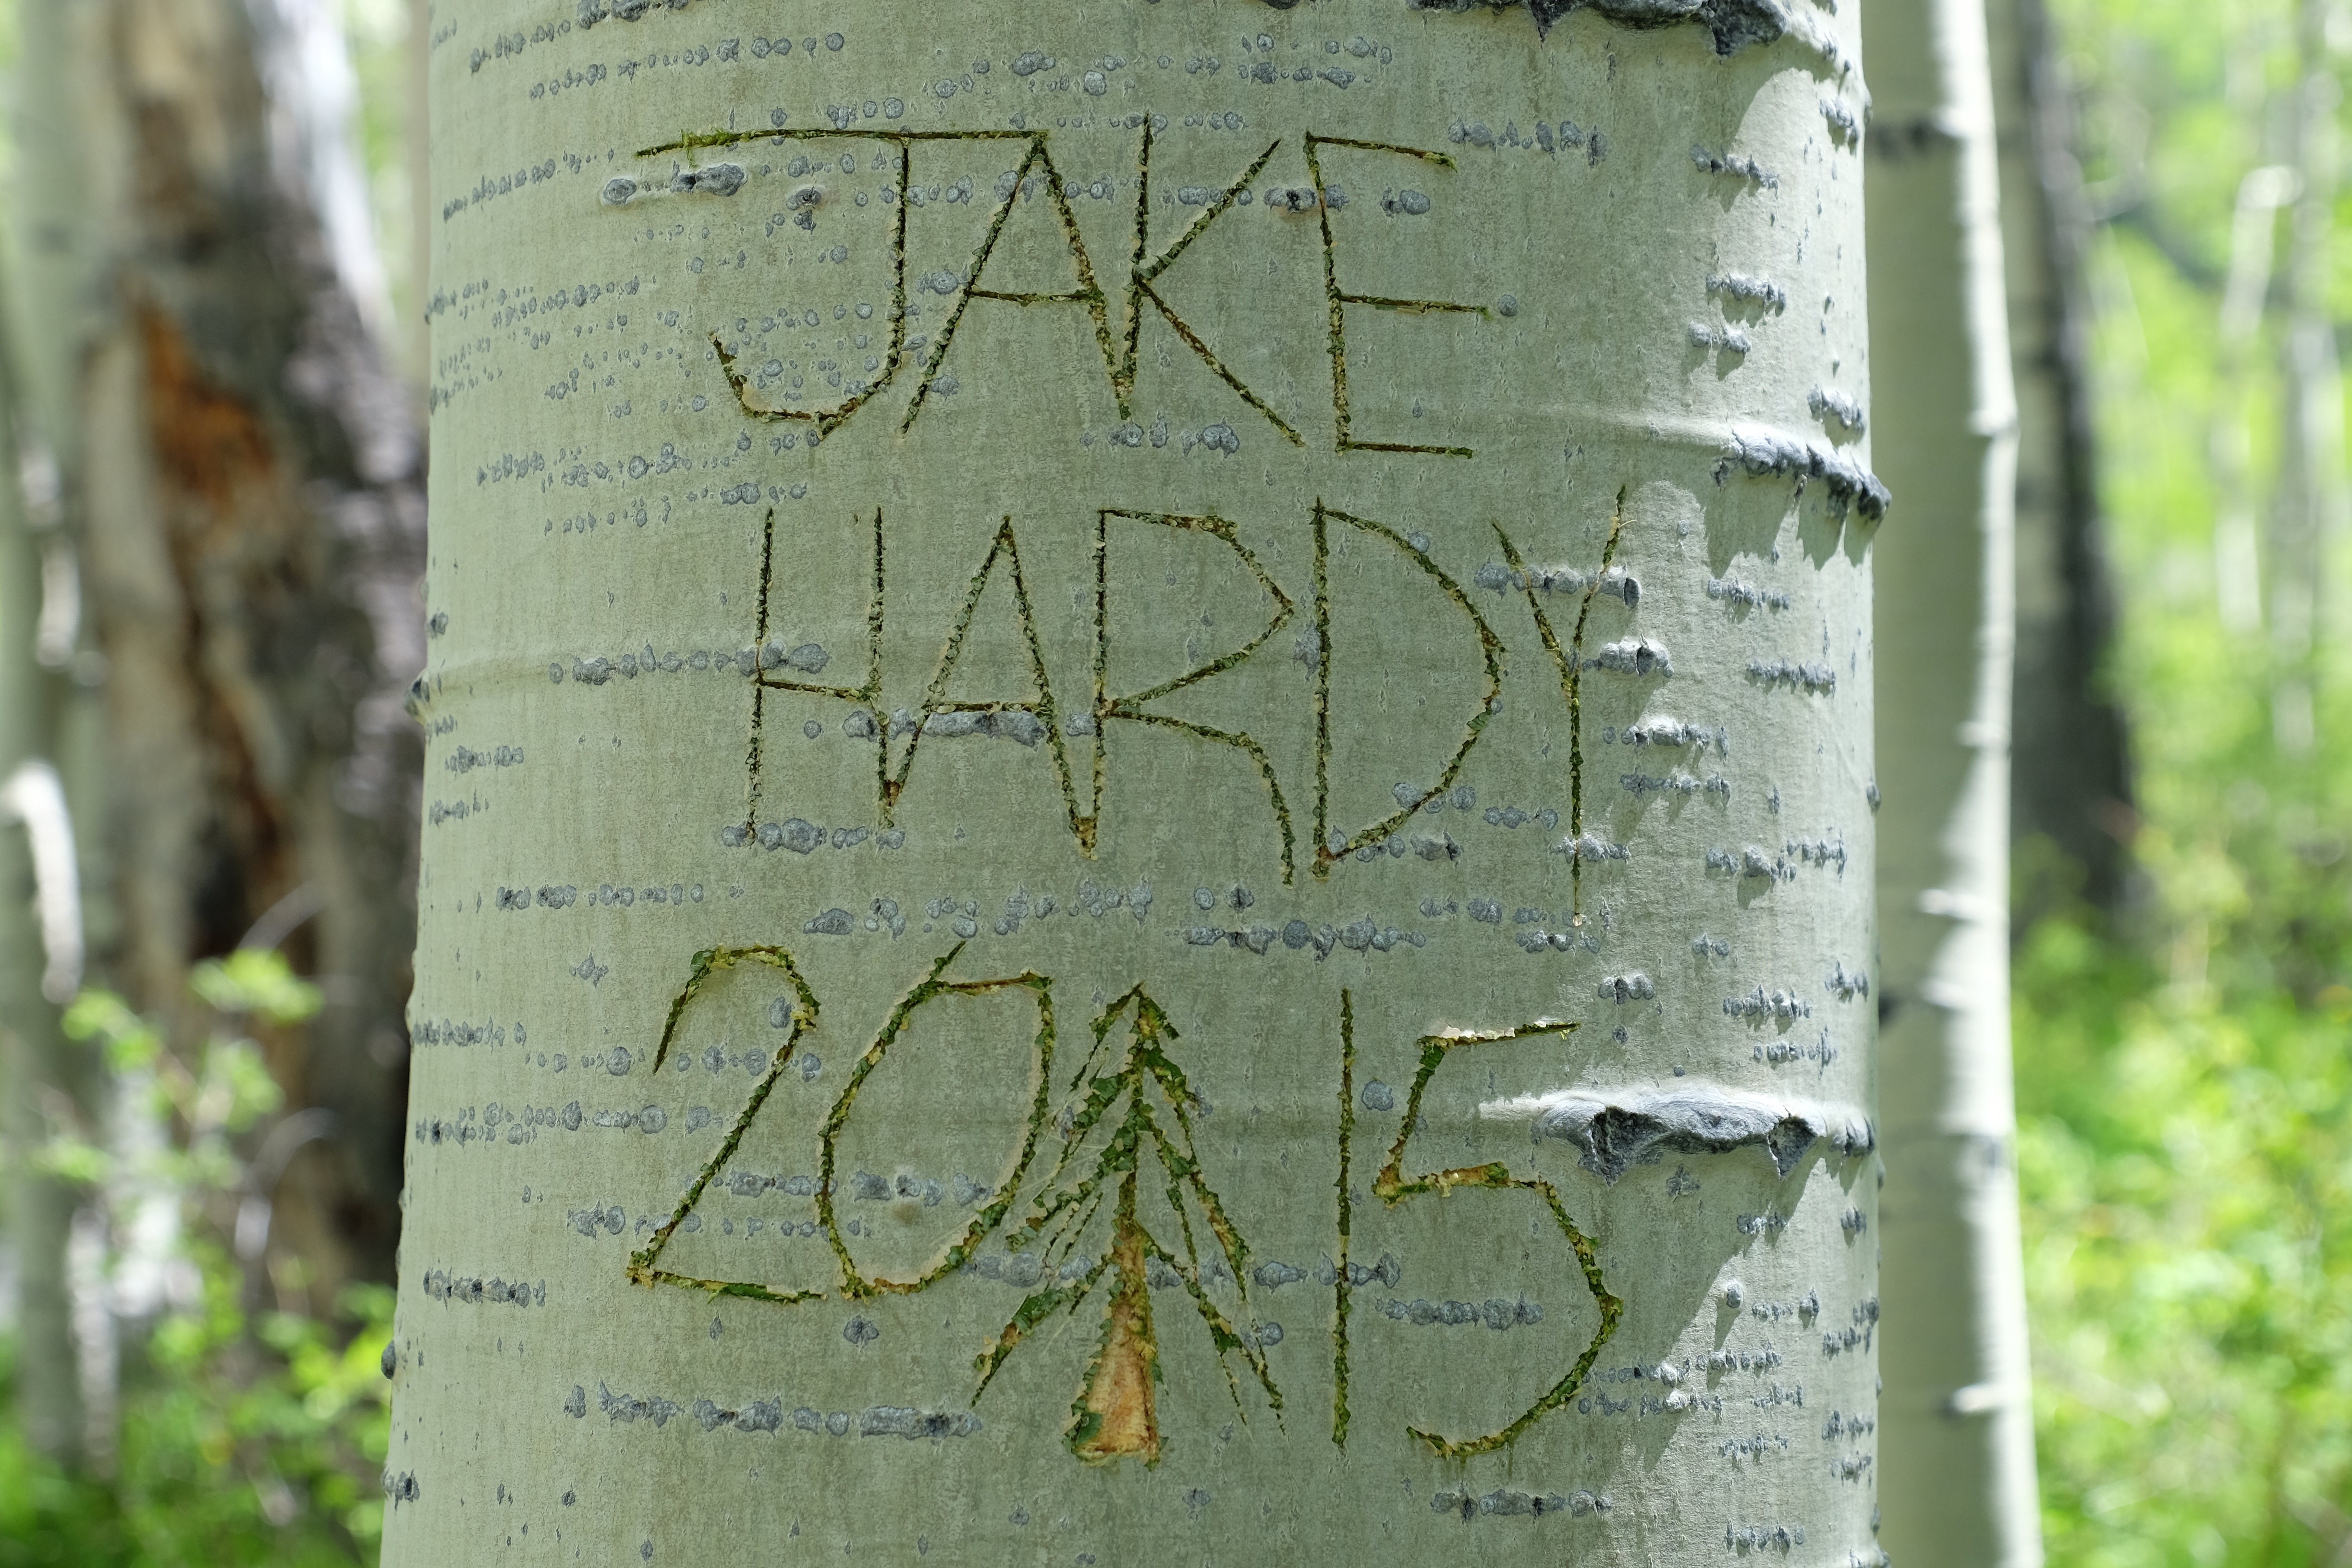 JAKE
HARDY
20 15